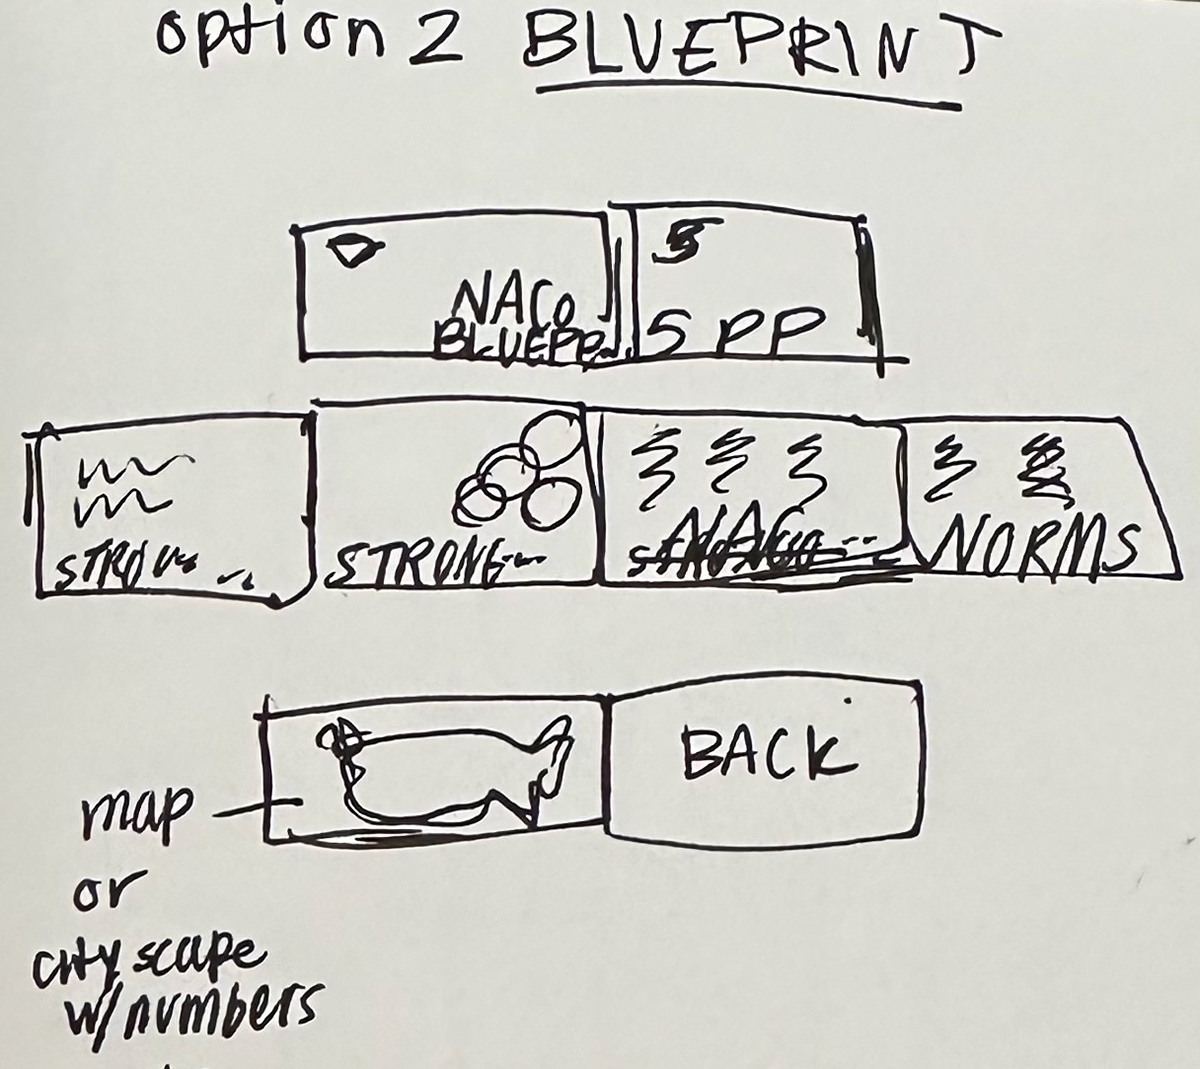 option 2 BLUEPRINT
NACo
BLUEPR
5 PP
STRONG
NORMS
map
BACK
or
city scape
w/numbers